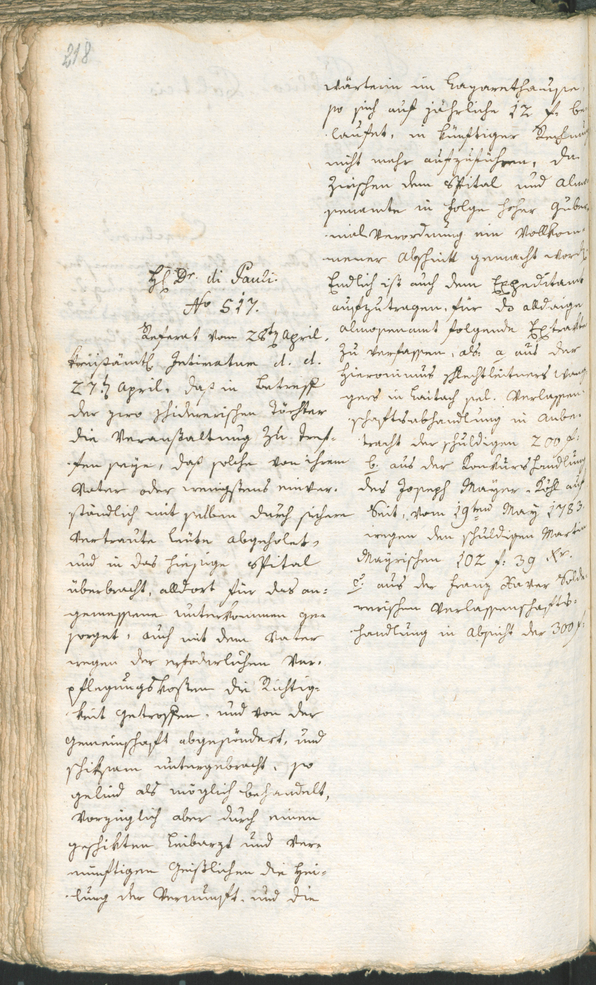 218
H: Dr. di Pauli.
No 517.
Referat vom 28t April.
kreisämtl. Intimatum d. d.
27t April, daß in Betreff
der zwo schidnerischen Töchter
die Veranstaltung zu tref-
fen seye, daß solche von ihrem
Vater oder wenigstens einver-
ständlich mit selben durch sichere
Vertraute Leute abgeholet,
und in das hiesige Spital
überbracht, alldort für das an-
gemessene unterkommen ge-
sorget, auch mit dem Vater
wegen der erforderlichen Ver-
pflegungskosten die Richtig-
keit getroffen, und von der
Gemeinschaft abgesöndert, und
schiksam untergebracht, so
gelind als möglich behandelt,
vorzüglich aber durch einen
geschikten Leibarzt und Ver-
nünftigen Geistlichen die Hei-
lung der Vernunft, und die
wärterin im Lazarethhause,
so sich auf jährliche 12 f. be-
laufet, in künftiger Rechnung
nicht mehr aufzuführen, da
zwischen dem Spital und Almo-
senamte in folge hoher Guber-
nial Verordnung ein Vollkom-
mener Abschnitt gemacht worden
Endlich ist auch dem Expeditamt
aufzutragen, für das alldasige
Almosenamt folgende Extrakte
zu verfassen, als a aus der
Hieronimus schlechtleitners
gers in Laitach sel. Verlassen-
schaftsabhandlung in Anbe-
tracht der schuldigen 200 f.
b. aus der Konkurshandlung
des Joseph Mayer
Seit, vom 19ten May 1783.
wegen den schuldigen Martin
Mayrischen 102 f. 39 Xr.
c. aus der Franz Xaver
rerischen Verlassenschafts-
handlung in Absicht der 300 f.